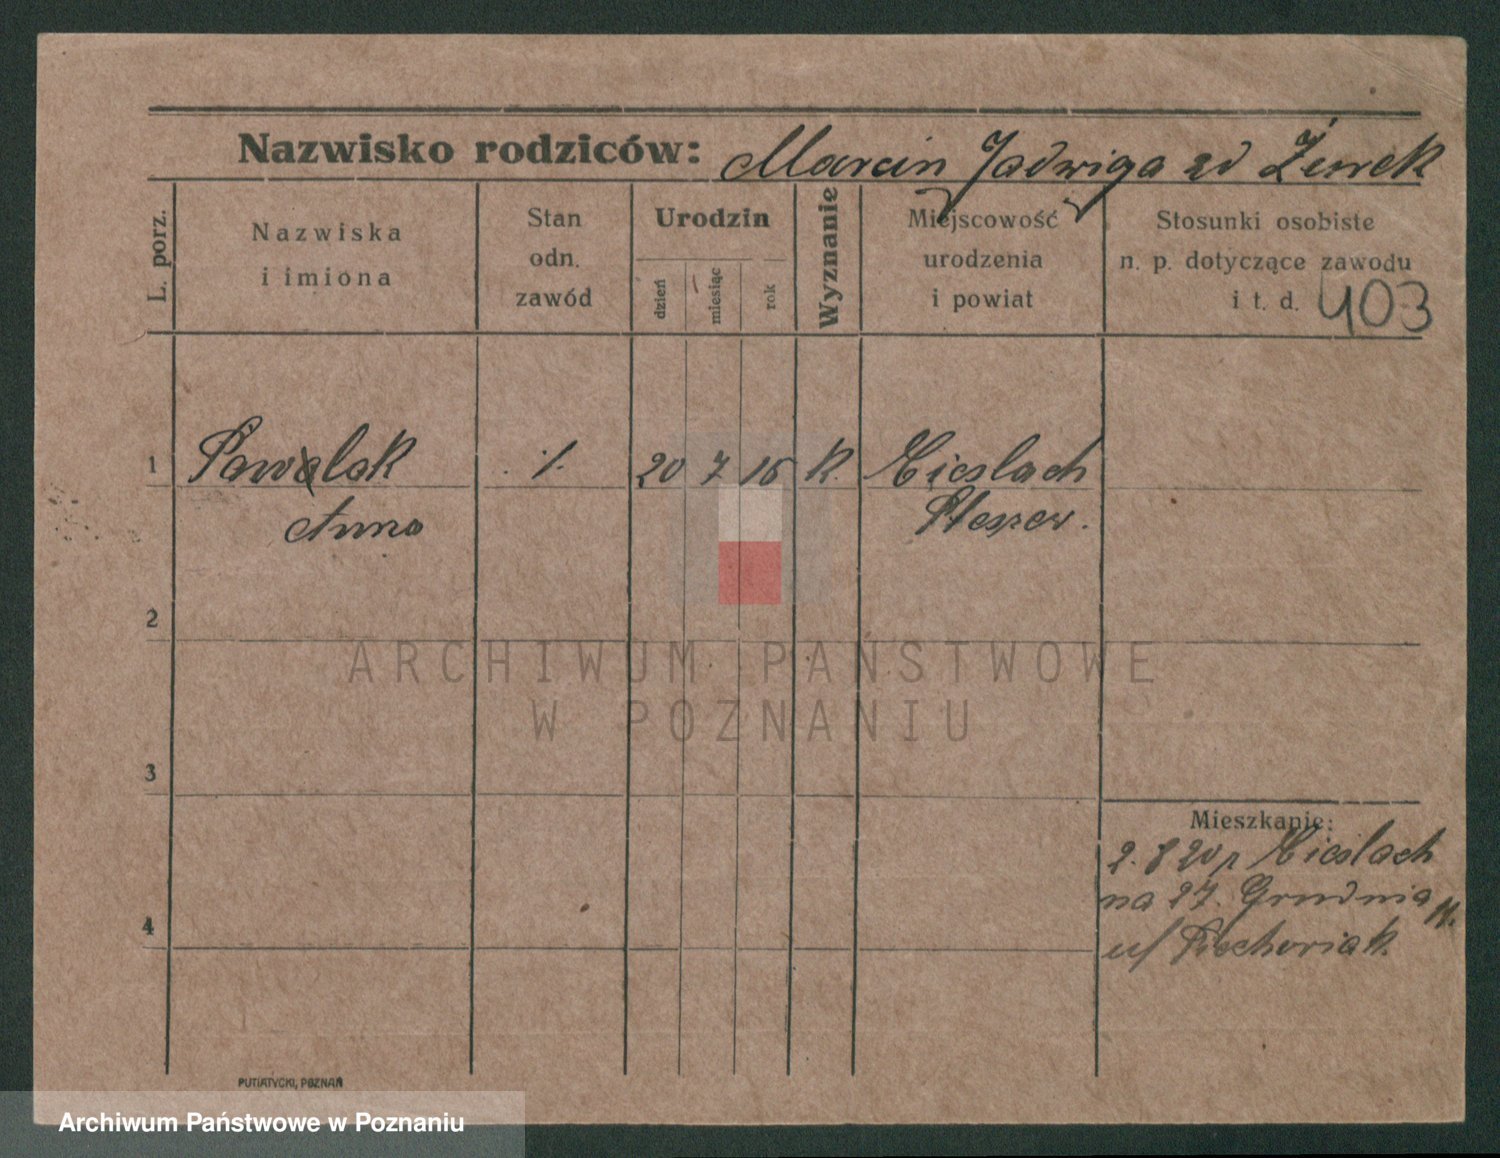 Nazwisko rodziców: Marcin Jadwiga zd Żurek
L. porz.
Nazwiska
i imiona
Stan
odn.
zawód
Urodzin
dzień
miesiąc
rok
Wyznanie
Miejscowość
urodzenia
i powiat
Stosunki osobiste
n. p. dotyczące zawodu
i t. d. 403
1 Pawalak 1. 20 7 16 K.
Anna
2
ARCHIWUM PAŃSTWOWE
W POZNANIU
3
Mieszkanie:
2. 8 20 r
na 27. Grudnia 11.
4
u/
PUTIATYCKI, POZNAŃ
Archiwum Państwowe w Poznaniu